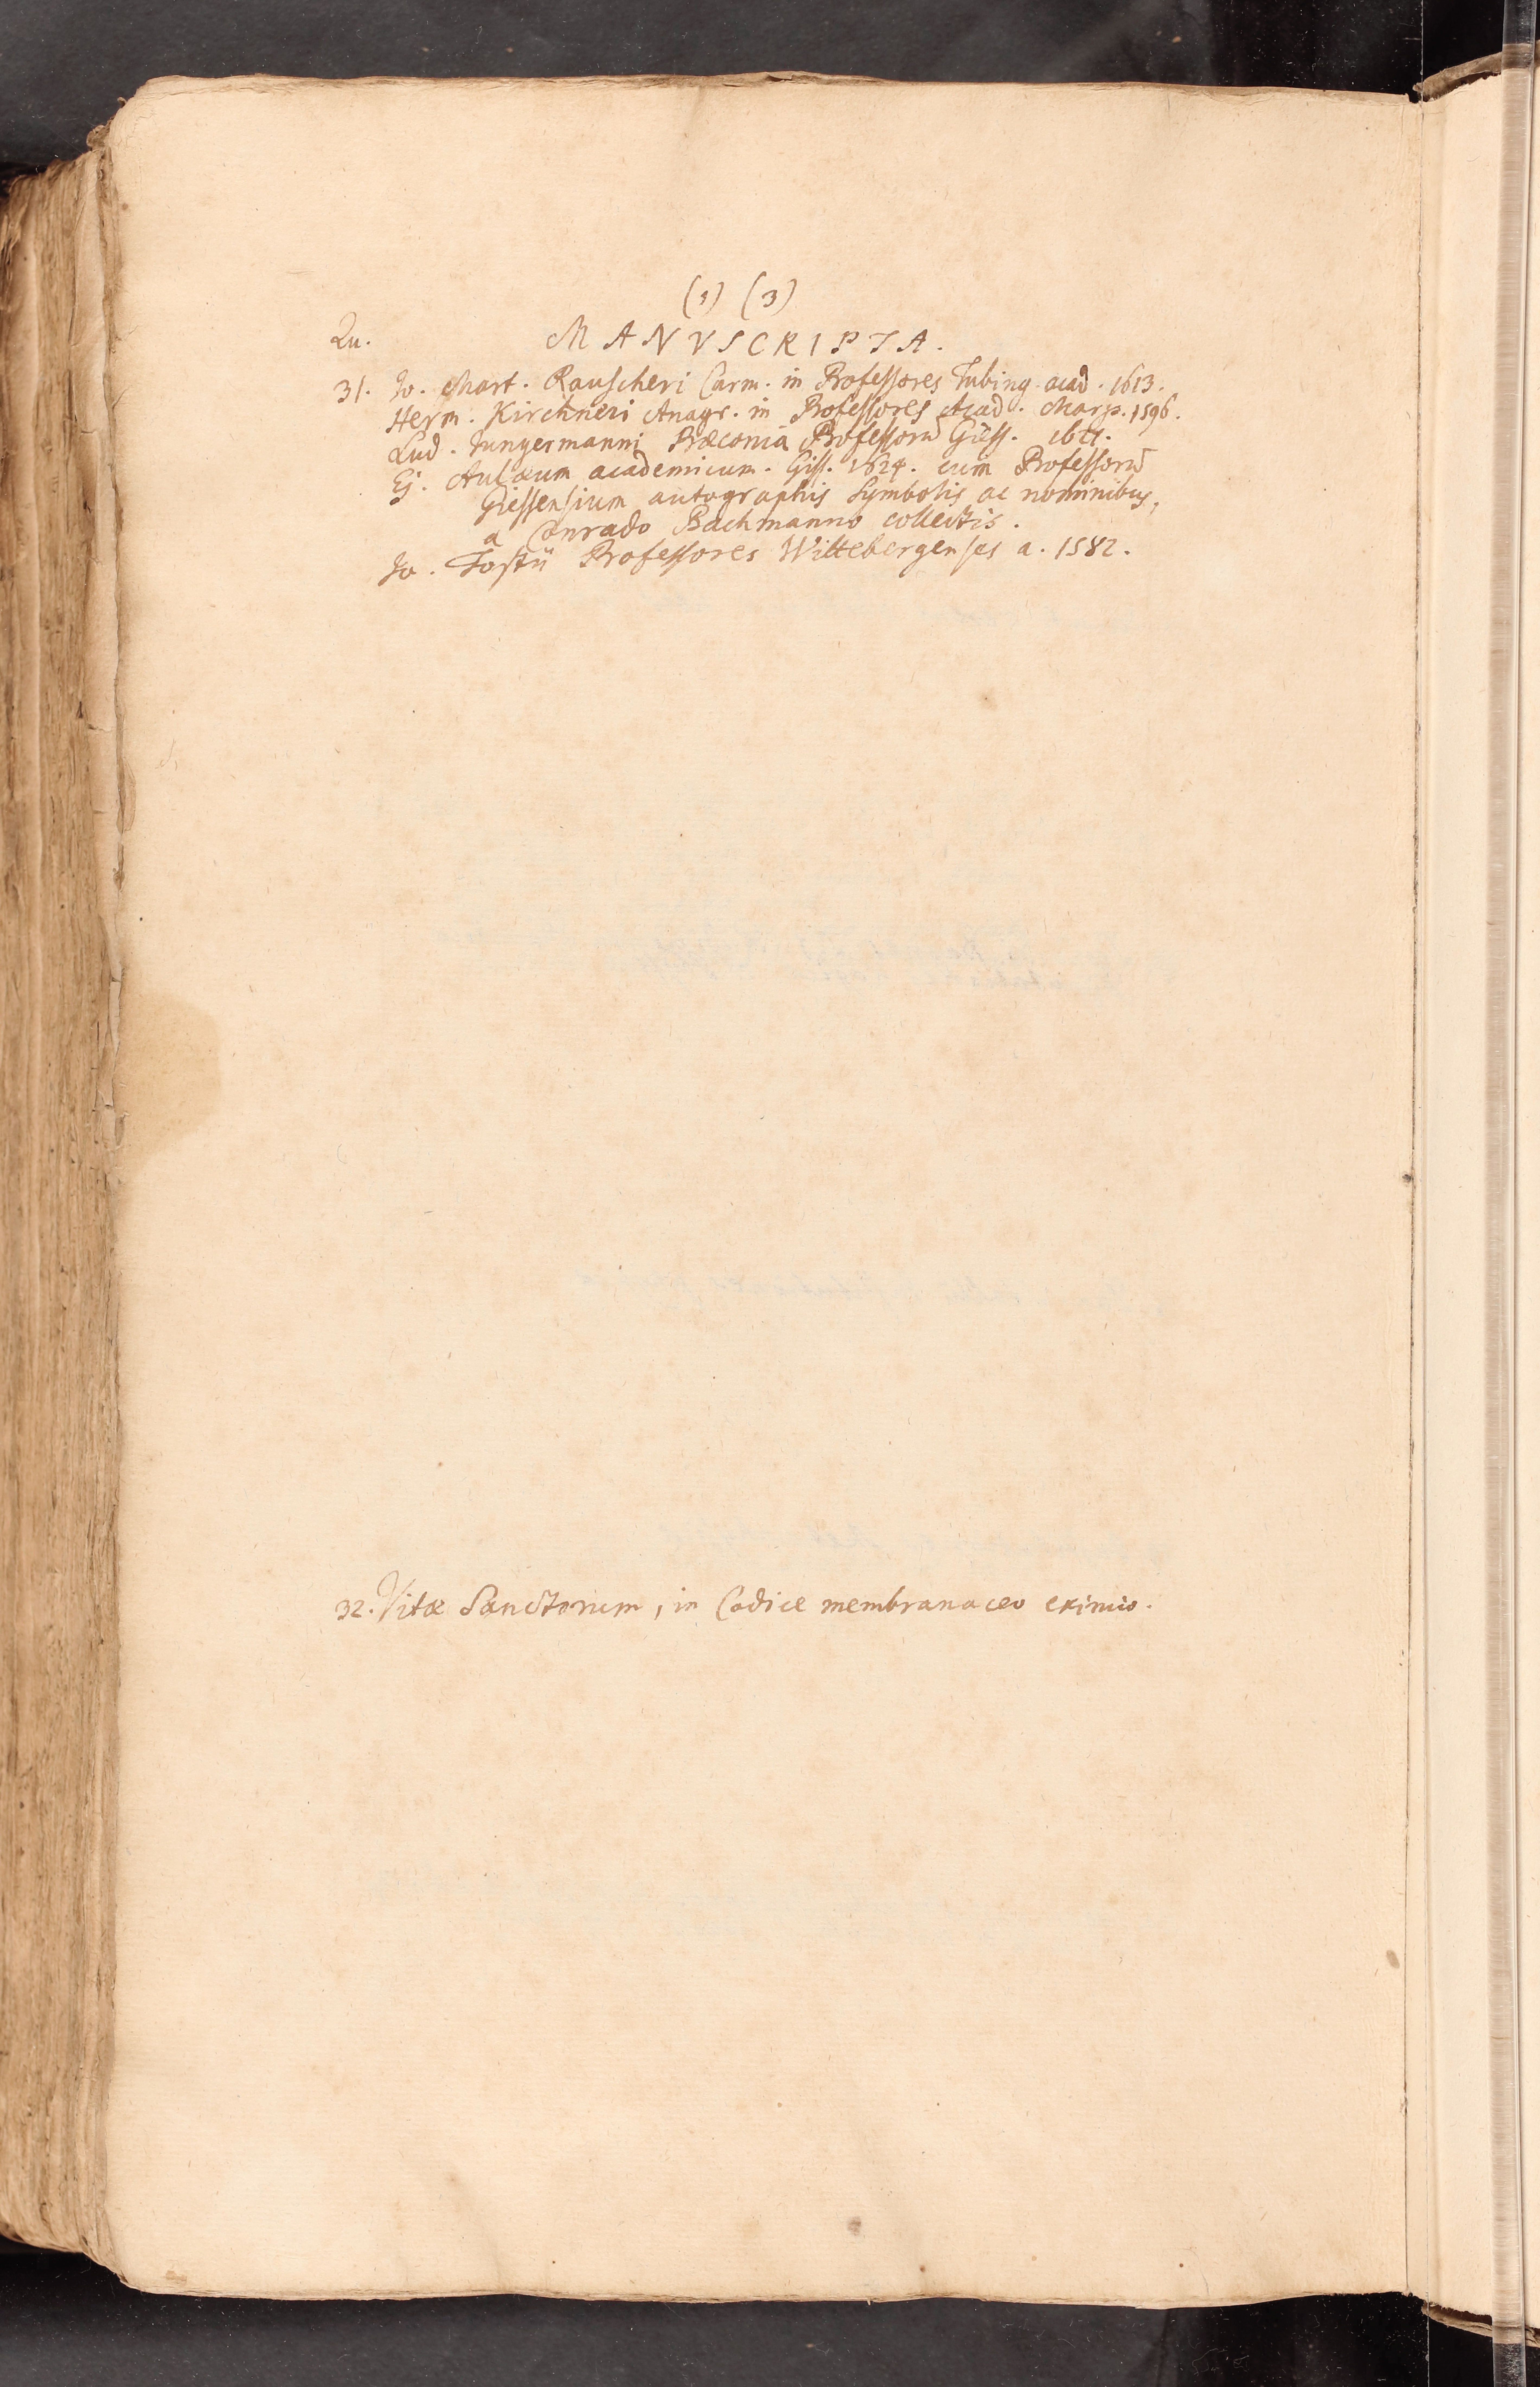 (1) (3)
Qu. MANVSCRIPTA.
31. Jo. Mart. Rauscheri Carm. in Professores Tubing. acad. 1613.
Herm. Kirchneri Anagr. in Professores Acad. Marp. 1596.
Lud. Jungermanni Præconia Professorū Giess.
Ej. Aulæum academicum. Giss. 1624. cum Professorū
Giessensium autographis Symbolis ac nominibus,
a Conrado Bachmanno collectis.
Jo. Fostii Professores Wittebergenses a. 1582.
32. Vitæ Sanctorum, in Codice membranaceo eximio.